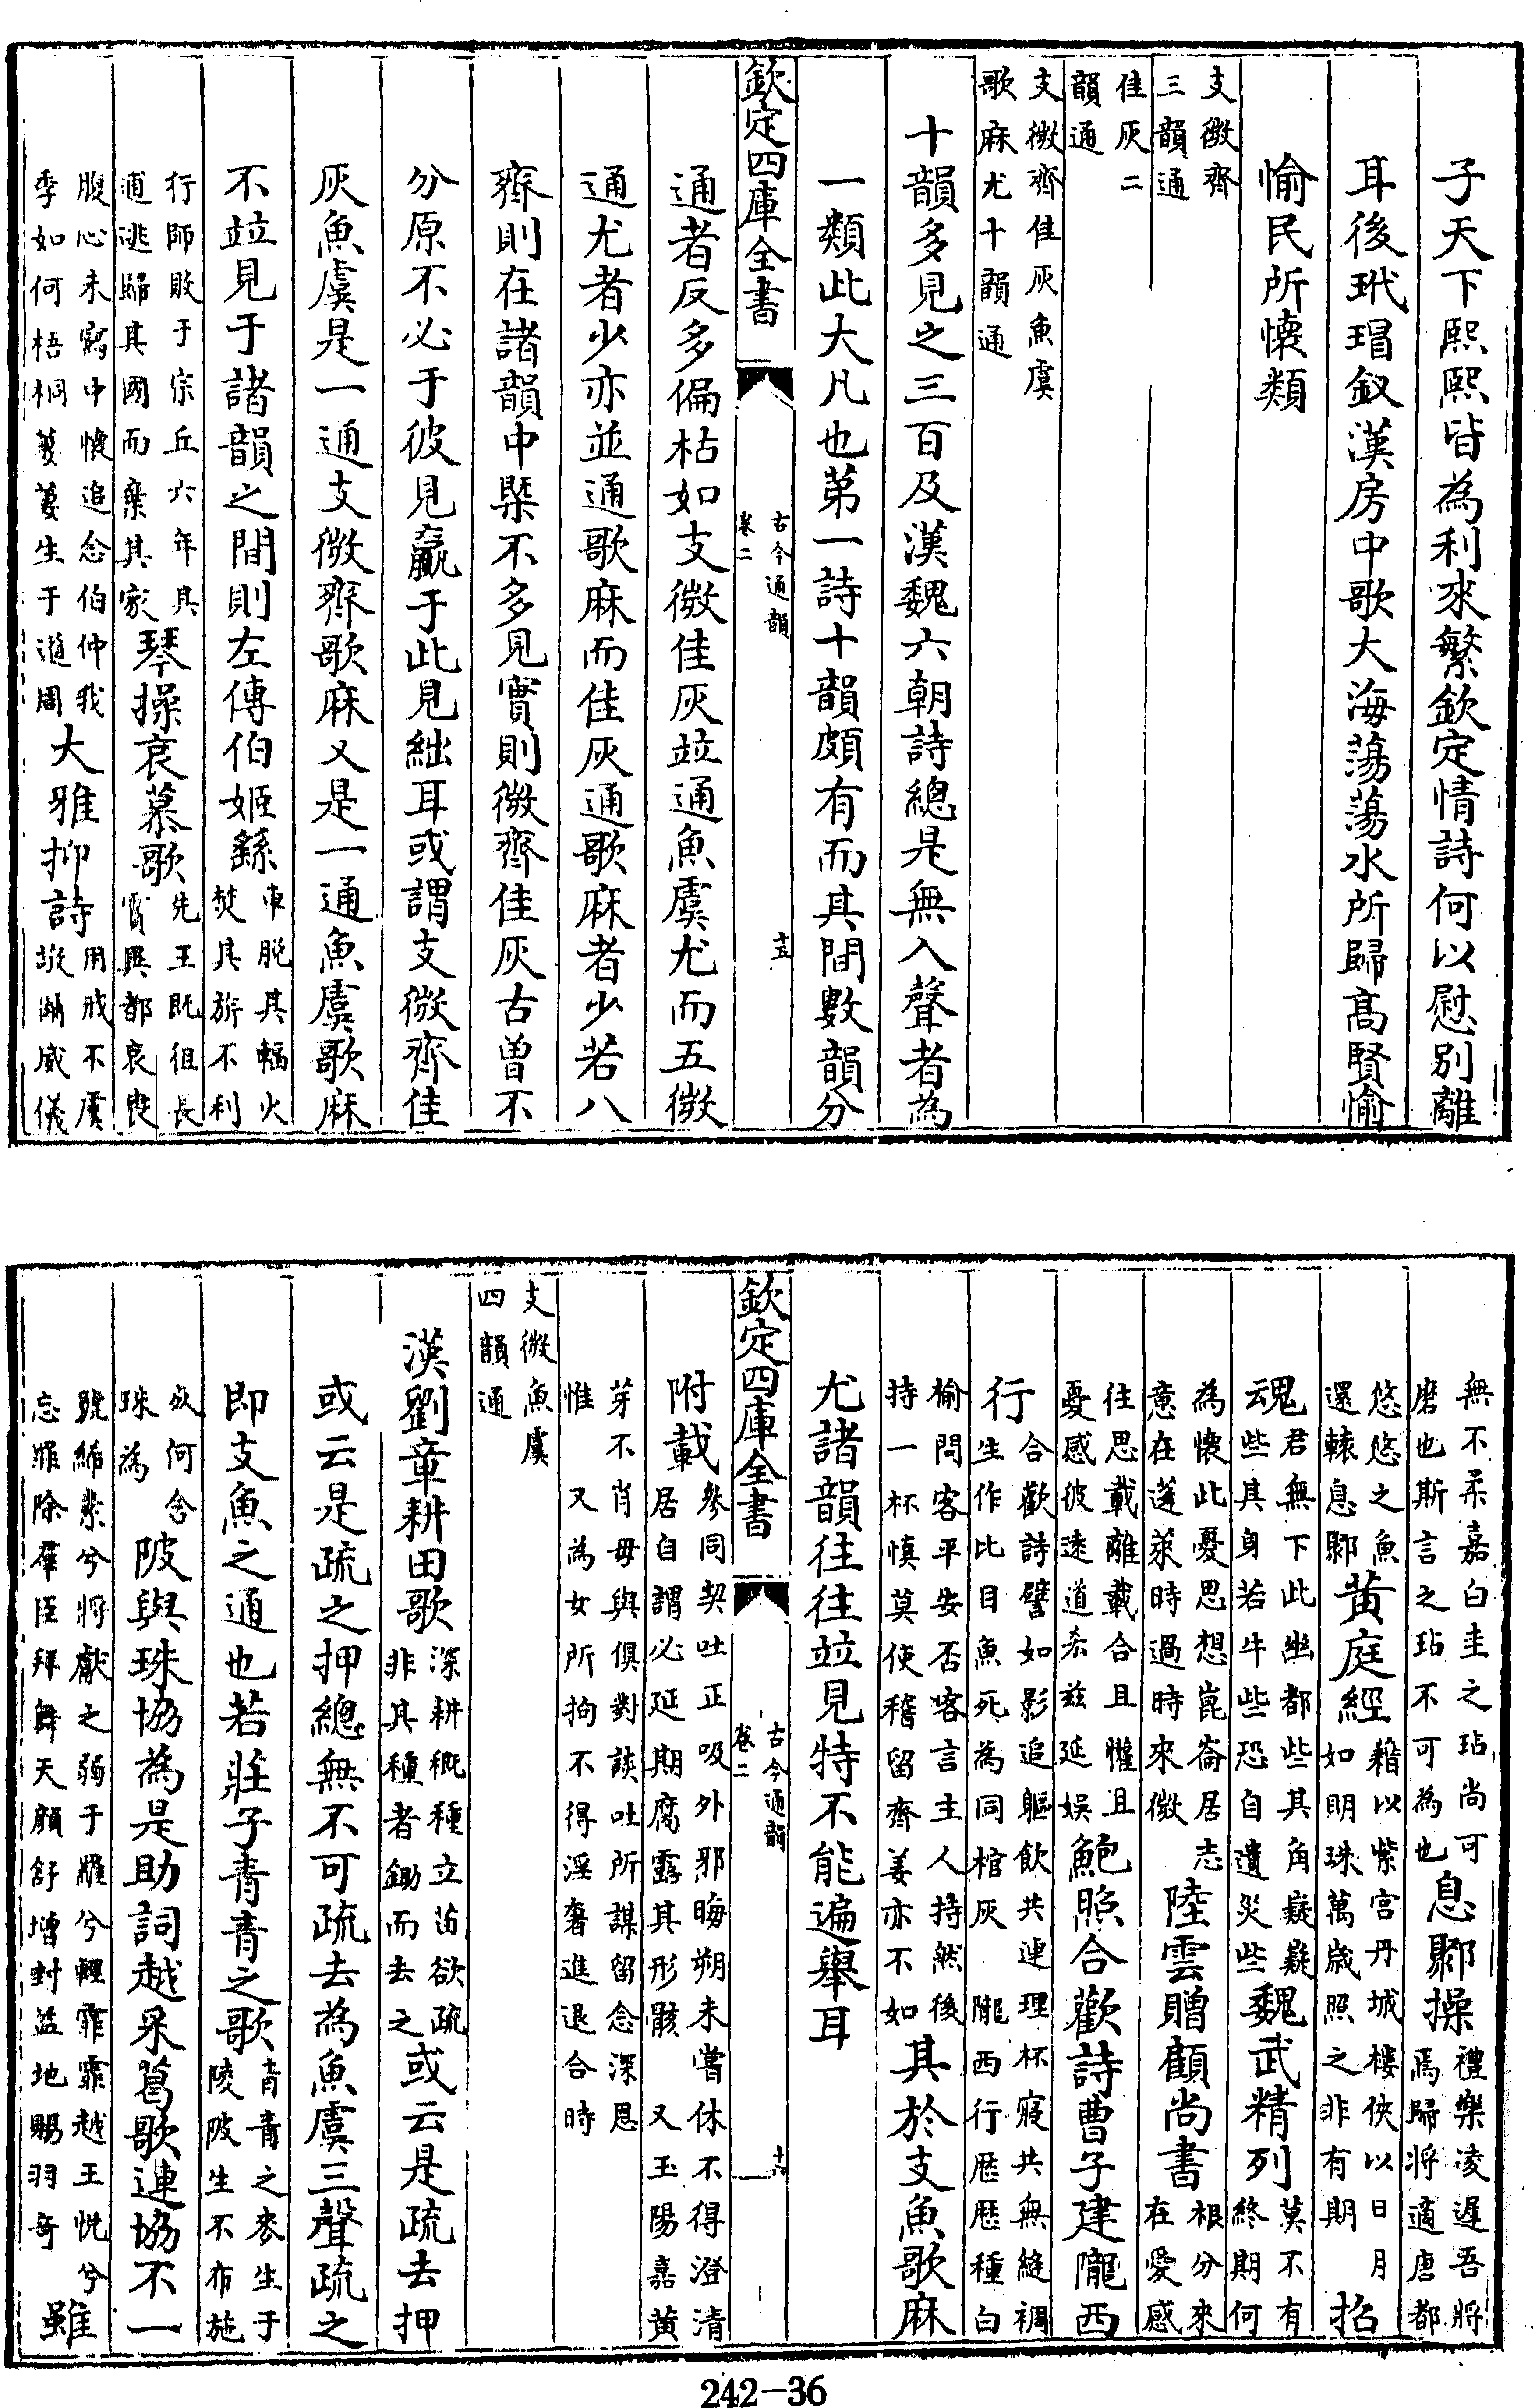 子天下熙熙皆為利來繁欽定情詩何以慰别離
耳後玳瑁釵漢房中歌大海蕩蕩水所歸髙賢愉
愉民所懷類
支微齊
三韻通
佳灰二
韻通
支微齊佳灰魚虞
歌麻尤十韻通
十韻多見之三百及漢魏六朝詩總是無入聲者為
一類此大凡也第一詩十韻頗有而其間數韻分
欽定四庫全書
古今通韻
卷二
十五
通者反多偏枯如支微佳灰竝通魚虞尤而五微
通尤者少亦並通歌麻而佳灰通歌麻者少若八
齊則在諸韻中槩不多見實則微齊佳灰古曾不
分原不必于彼見贏于此見絀耳或謂支微齊佳
灰魚虞是一通支微齊歌麻又是一通魚虞歌麻
不竝見于諸韻之間則左傳伯姬繇
車脱其輻火
焚其旂不利
行師敗于宗丘六年其
逋逃歸其國而棄其家
琴操哀慕歌
先王既徂長
賔異都哀喪
腹心未寫中懷追念伯仲我
季如何梧桐萋萋生于道周
大雅抑詩
用戒不虞
敬爾威儀
無不柔嘉白圭之玷尚可
磨也斯言之玷不可為也
息鄹操
禮樂凌遲吾將
焉歸將適唐都
悠悠之魚
還轅息鄹
黄庭經
籍以紫宫丹城樓俠以日月
如明珠萬歲照之非有期
招
魂
君無下此幽都些其角觺觺
些其身若牛些恐自遺災些
魏武精列
莫不有
終期何
為懷此憂思想崑崙居
意在蓬萊時過時來微
志
陸雲贈顧尚書
根分來
在愛感
往思載離載合且懽且
憂感彼逺道玄兹延娱
鮑照合歡詩曹子建隴西
行
合歡詩譬如影追軀飲共連理杯寢共無縫裯
生作比目魚死為同棺灰 隴西行厯厯種白
榆問客平安否客言主人持然後
持一杯慎莫使稽留齊姜亦不如
其於支魚歌麻
尤諸韻往往竝見特不能遍舉耳
欽定四庫全書
古今通韻
卷二
十六
附載
參同契吐正吸外邪晦朔未嘗休不得澄清
居自謂必延期腐露其形骸 又玉陽嘉黄
芽不肖毋與俱對談吐所謀留念深思
惟 又為女所拘不得淫奢進退合時
支微魚虞
四韻通
漢劉章耕田歌
深耕穊種立苗欲疏
非其種者鋤而去之
或云是疏去押
或云是疏之押總無不可疏去為魚虞三聲疏之
即支魚之通也若莊子青青之歌
青青之麥生于
陵陂生不布施
死何含
珠為
陂與珠協為是助詞越采葛歌連協不一
號絺素兮將獻之弱于羅兮輕霏霏越王悦兮
忘罪除羣臣拜舞天顔舒增封益地賜羽奇
雖
242-36